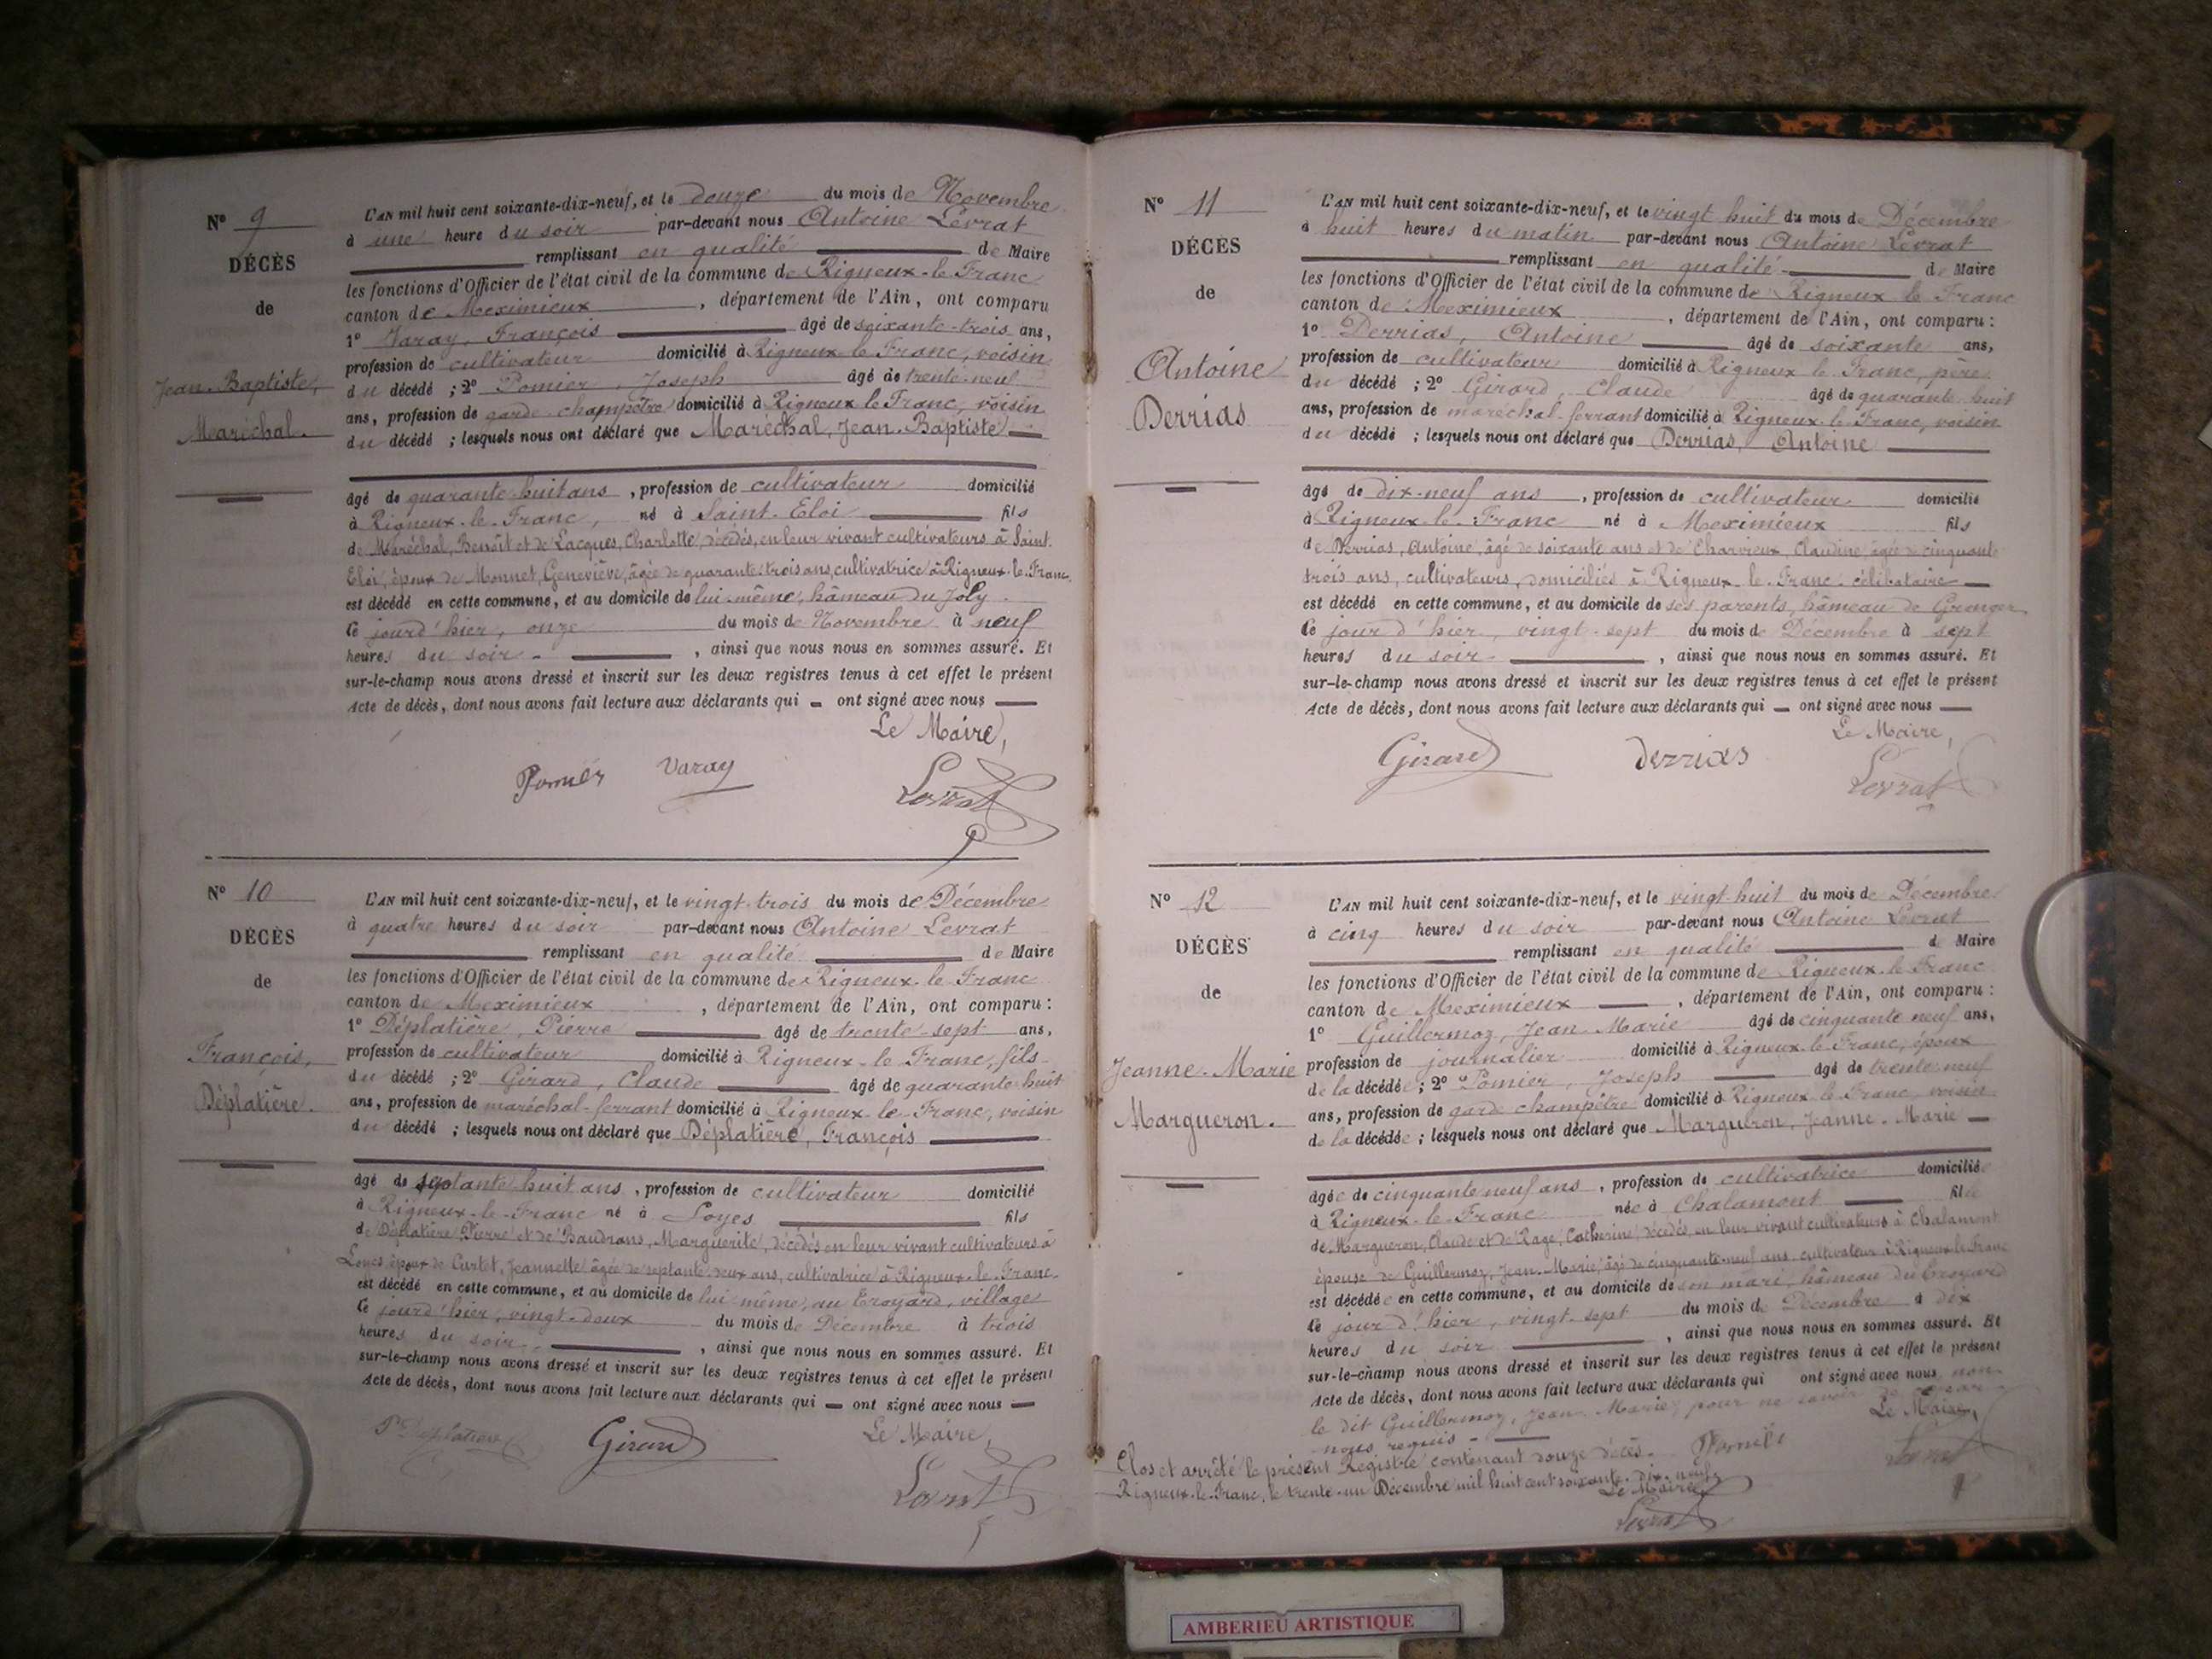 N° 9
DÉCÈS
de
Jean-Baptiste,
Maréchal.
L'AN mil huit cent soixante-dix-neuf, et le douze du mois de Novembre
à une heure du soir par-devant nous Antoine Levrat
remplissant en qualité de Maire
les fonctions d'Officier de l'état civil de la commune de Rigneux-le-Franc
canton de Meximieux, département de l'Ain, ont comparu
1° Varay, François âgé de soixante-trois ans,
profession de cultivateur domicilié à Rigneux le Franc, voisin
du décédé ; 2° Pomier, Joseph âgé de trente-neuf
ans, profession de garde-champêtre domicilié à Rigneux le Franc, voisin
du décédé ; lesquels nous ont déclaré que Maréchal, Jean-Baptiste
âgé de quarante-huit ans, profession de cultivateur domicilié
à Rigneux-le-Franc, né à Saint-Eloi fils
de Maréchal, Benoît et de Lacques, Charlotte, décédés, en leur vivant cultivateurs à Saint-
Eloi, époux de Monnet, Geneviève, âgée de quarante-trois ans, cultivatrice à Rigneux-le-Franc
est décédé en cette commune, et au domicile de lui-même, hâmeau du Joly
le jourd'hier, onze du mois de Novembre à neuf
heures du soir - , ainsi que nous nous en sommes assuré. Et
sur-le-champ nous avons dressé et inscrit sur les deux registres tenus à cet effet le présent
Acte de décès, dont nous avons fait lecture aux déclarants qui ont signé avec nous
Le Maire,
Pomier Varay Levrat
N° 10
DÉCÈS
de
François,
Déplatière.
L'AN mil huit cent soixante-dix-neuf, et le vingt-trois du mois de Décembre
à quatre heures du soir par-devant nous Antoine Levrat
remplissant en qualité de Maire
les fonctions d'Officier de l'état civil de la commune de Rigneux-le-Franc
canton de Meximieux, département de l'Ain, ont comparu :
1° Déplatière, Pierre âgé de trente-sept ans,
profession de cultivateur domicilié à Rigneux-le-Franc, fils
du décédé ; 2° Girard, Claude âgé de quarante-huit
ans, profession de maréchal-ferrant domicilié à Rigneux-le-Franc, voisin
du décédé ; lesquels nous ont déclaré que Déplatière, François
âgé de septante-huit ans, profession de cultivateur domicilié
à Rigneux-le-Franc né à Loyes fils
de Déplatière Pierre et de Baudrans, Marguerite, décédés en leur vivant cultivateurs à
Loyes époux de Curtet, Jeannette âgée de septante-deux ans, cultivatrice à Rigneux-le-Franc
est décédé en cette commune, et au domicile de lui-même, au Croyard, village
le jourd'hier, vingt-deux du mois de Décembre à trois
heures du soir - , ainsi que nous nous en sommes assuré. Et
sur-le-champ nous avons dressé et inscrit sur les deux registres tenus à cet effet le présent
Acte de décès, dont nous avons fait lecture aux déclarants qui ont signé avec nous
Le Maire,
P. Deplatiere Girard Levrat
N° 11
DÉCÈS
de
Antoine
Derrias
L'AN mil huit cent soixante-dix-neuf, et le vingt huit du mois de Décembre
à huit heures du matin par-devant nous Antoine Levrat
remplissant en qualité de Maire
les fonctions d'Officier de l'état civil de la commune de Rigneux le Franc
canton de Meximieux, département de l'Ain, ont comparu :
1° Derrias, Antoine âgé de soixante ans,
profession de cultivateur domicilié à Rigneux le Franc, père
du décédé ; 2° Girard, Claude âgé de quarante-huit
ans, profession de maréchal-ferrant domicilié à Rigneux-le-Franc, voisin
du décédé ; lesquels nous ont déclaré que Derrias, Antoine
âgé de dix-neuf ans, profession de cultivateur domicilié
à Rigneux-le-Franc né à Meximieux fils
de Derrias, Antoine, âgé de soixante ans et de Charvieux, Claudine, âgée de cinquante
trois ans, cultivateurs, domiciliés à Rigneux-le-Franc célibataire
est décédé en cette commune, et au domicile de ses parents, hâmeau de Granger
le jour d'hier, vingt-sept du mois de Décembre à sept
heures du soir - , ainsi que nous nous en sommes assuré. Et
sur-le-champ nous avons dressé et inscrit sur les deux registres tenus à cet effet le présent
Acte de décès, dont nous avons fait lecture aux déclarants qui ont signé avec nous
Le Maire,
Girard Derrias Levrat
N° 12
DÉCÈS
de
Jeanne-Marie
Margueron.
L'AN mil huit cent soixante-dix-neuf, et le vingt-huit du mois de Décembre
à cinq heures du soir par-devant nous Antoine Levrat
remplissant en qualité de Maire
les fonctions d'Officier de l'état civil de la commune de Rigneux-le-Franc
canton de Meximieux, département de l'Ain, ont comparu :
1° Guillermoz, Jean-Marie âgé de cinquante neuf ans,
profession de journalier domicilié à Rigneux-le-Franc, époux
de la décédée ; 2° Pomier, Joseph âgé de trente-neuf
ans, profession de garde champêtre domicilié à Rigneux le Franc, voisin
de la décédée ; lesquels nous ont déclaré que Margueron, Jeanne-Marie
âgée de cinquante neuf ans, profession de cultivatrice domiciliée
à Rigneux-le-Franc née à Chalamont fille
de Margueron, Claude et de Rage, Catherine, décédés, en leur vivant cultivateurs à Chalamont
épouse de Guillermoz, Jean-Marie, âgé de cinquante-neuf ans, cultivateur à Rigneux-le-Franc
est décédée en cette commune, et au domicile de son mari, hâmeau du Croyard
le jour d'hier, vingt-sept du mois de Décembre à dix
heures du soir , ainsi que nous nous en sommes assuré. Et
sur-le-champ nous avons dressé et inscrit sur les deux registres tenus à cet effet le présent
Acte de décès, dont nous avons fait lecture aux déclarants qui ont signé avec nous non
le dit Guillermoz, Jean-Marie, pour ne savoir de ce par
nous requis - Le Maire,
Pomier Levrat
Clos et arrêté le présent Registre contenant douze décès.
Rigneux-le-Franc, le trente-un Décembre mil huit cent soixante-dix-neuf
Le Maire
Levrat
AMBERIEU ARTISTIQUE